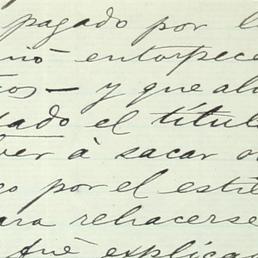 pagado por l
nó entorpece
os — y que al
tado el títul
ver á sacar o
o por el estr
ara rehacerse
fué explica